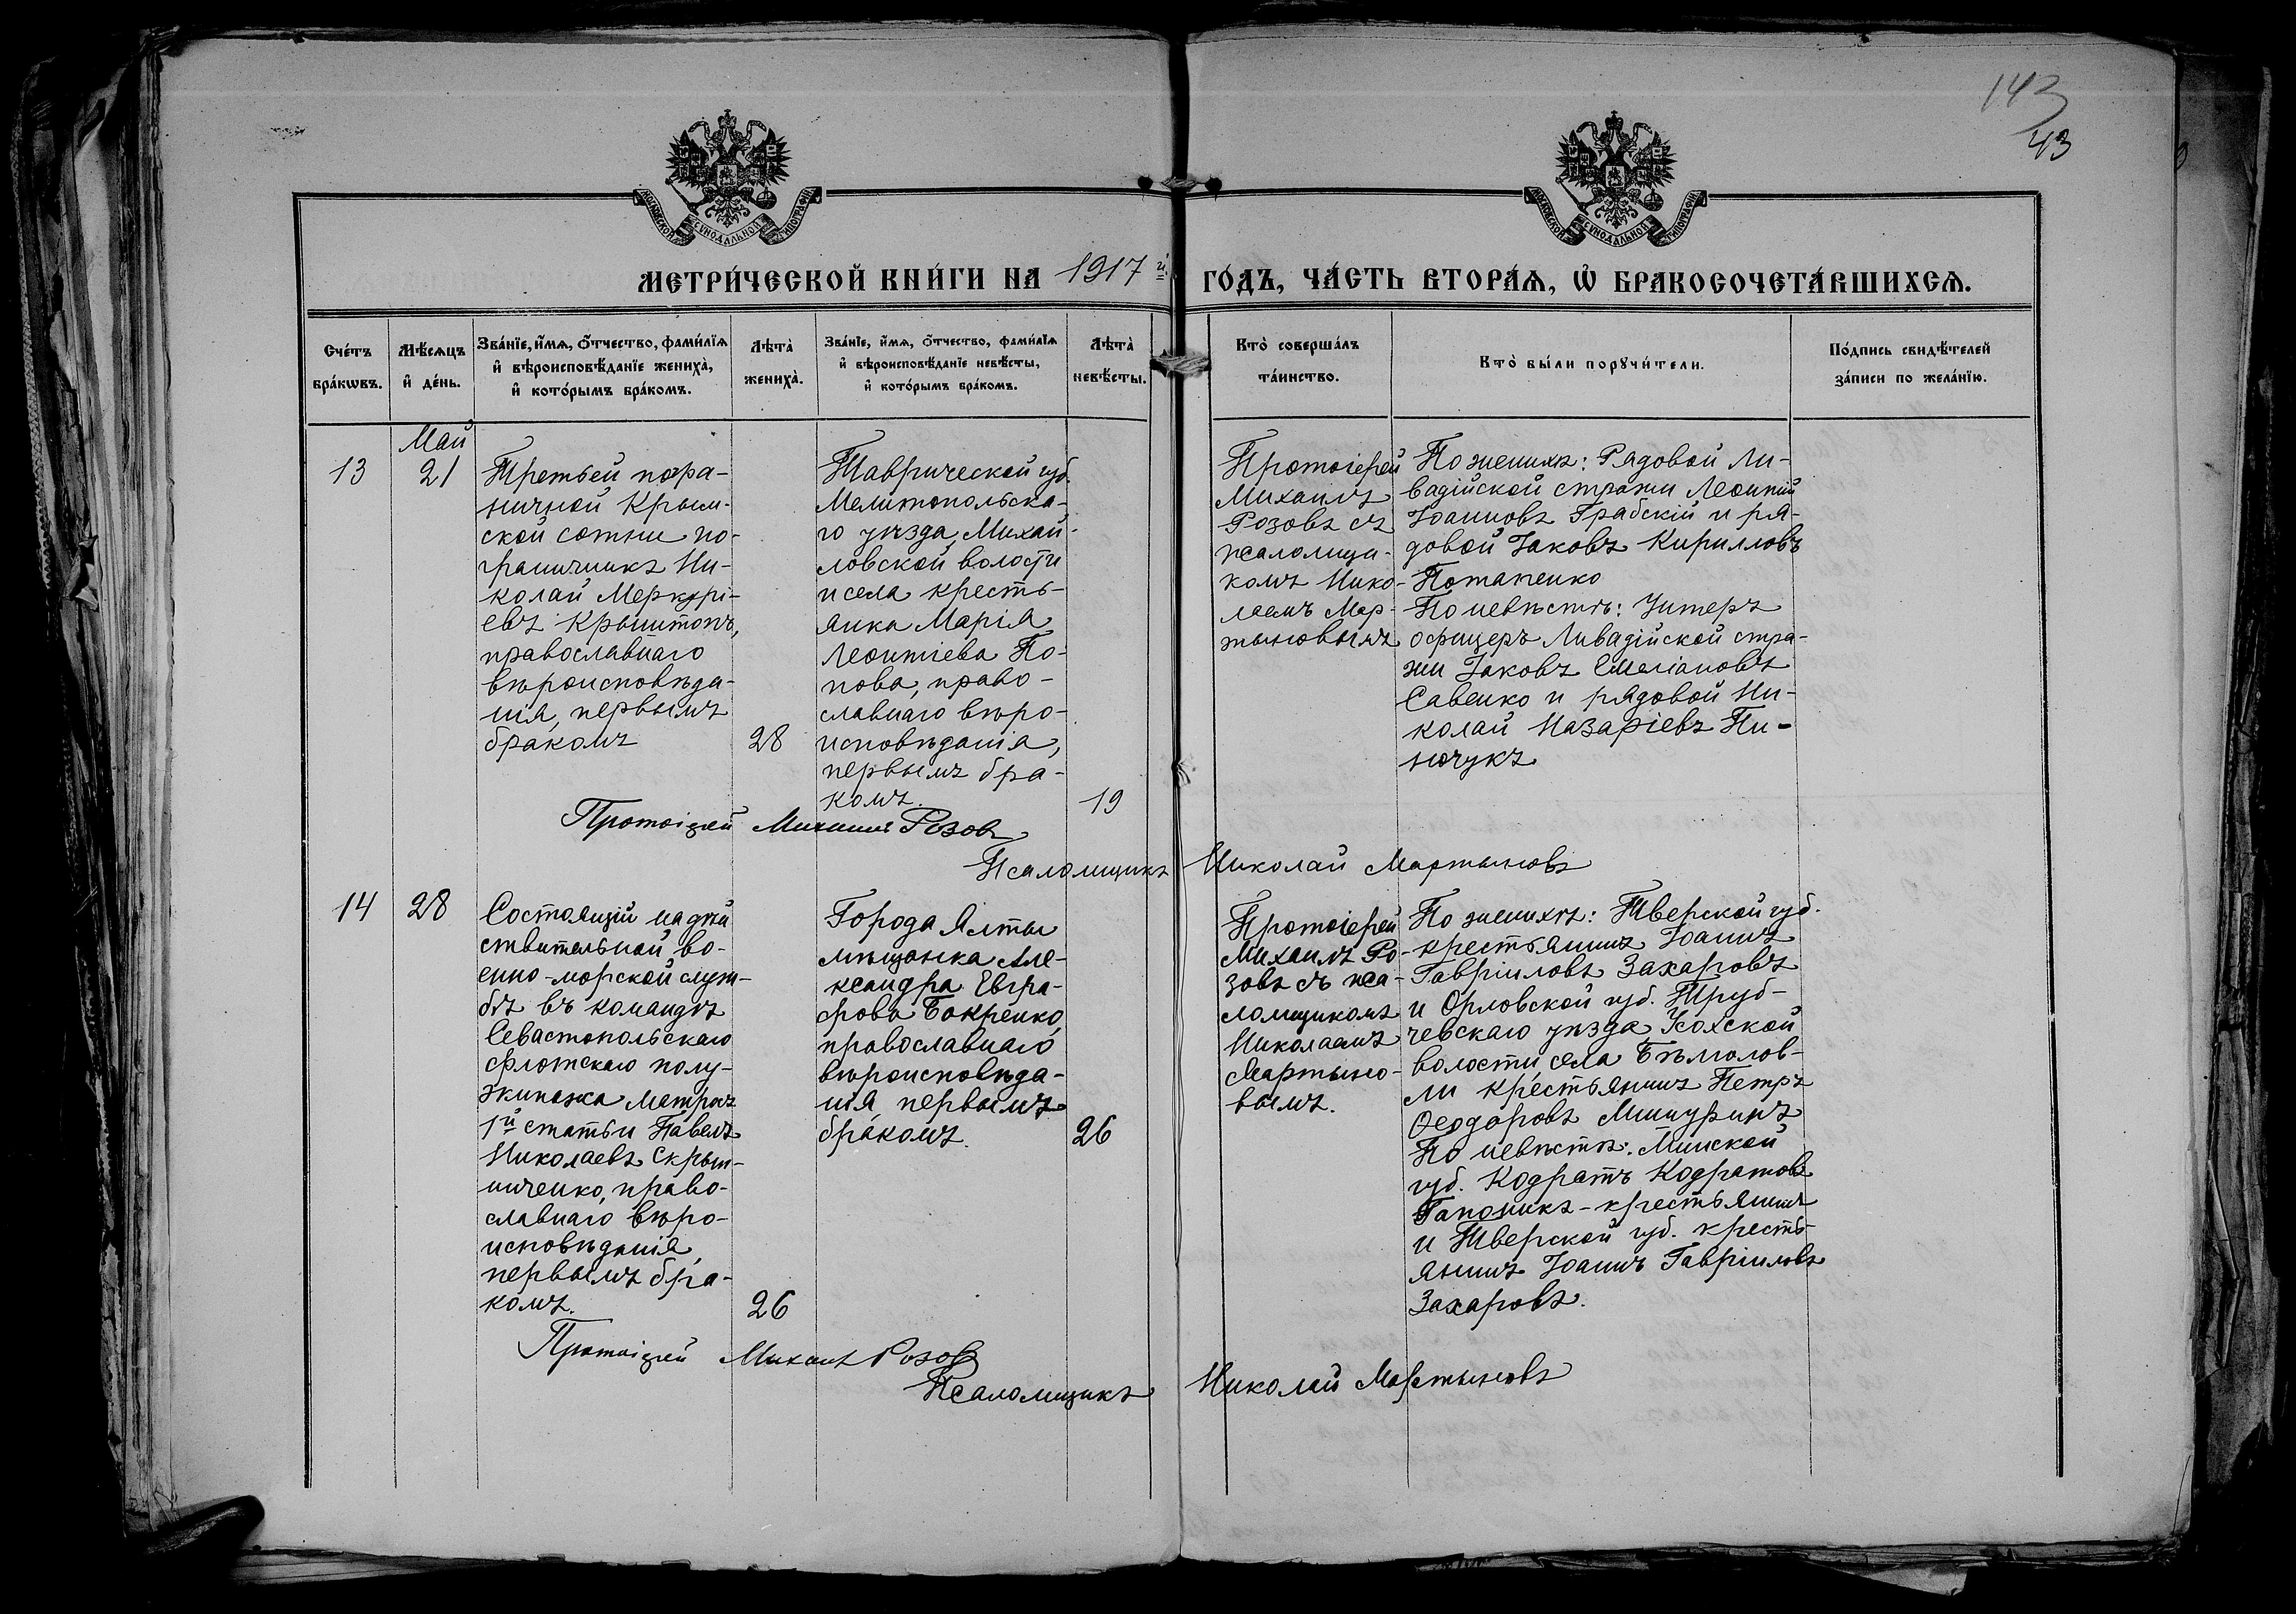 143
43
МОСКОВСКОЙ СѴНОДАЛЬНОЙ ТИПОГРАФІИ
МОСКОВСКОЙ СѴНОДАЛЬНОЙ ТИПОГРАФІИ
МЕТРИ́ЧЕСКОЙ КНИ́ГИ НА 1917 й ГО́ДЪ, ЧА́СТЬ ВТОРА́Ѧ, Ѡ҆ БРАКОСОЧЕТА́ВШИХСѦ.
Счетъ
бра́кωвъ.
Мѣ́сяцъ
и҆ де́нь.
Зва́нїе, и҆́мѧ, ѻ҆́тчество, фами́лїѧ
и҆ вѣроисповѣ́данїе жениха̀,
и҆ кото́рымъ бра́комъ.
Лѣта̀
жениха̀.
Зва́нїе, и҆́мѧ, ѻ҆́тчество, фами́лїѧ
и҆ вѣроисповѣ́данїе невѣ́сты,
и҆ кото́рымъ бра́комъ.
Лѣта̀
невѣ́сты.
Кто̀ соверша́лъ
та́инство.
Кто̀ бы́ли порꙋчи́тели.
По́дпись свидѣ́телей
за́писи по жела́нїю.
13
Май
21
Третьей погра-
ничной Крым-
ской сотни по-
граничникъ Ни-
колай Меркурі-
евъ Крыштопъ,
православнаго
вѣроисповѣда-
нія, первымъ
бракомъ
28
Таврической губ.
Мелитопольска-
го уѣзда, Михай-
ловской волости
и села кресть-
янка Марія
Леонтіева По-
пова, право-
славнаго вѣро-
исповѣданія,
первымъ бра-
комъ.
19
Протоіерей
Михаилъ
Розовъ съ
псаломщи-
комъ Нико-
лаемъ Мар-
тыновымъ
По женихѣ: Рядовой Ли-
вадійской стражи Леонтій
Іоанновъ Грабскій и ря-
довой Іаковъ Кирилловъ
Потапенко
По невѣстѣ: Унтеръ
офицеръ Ливадійской стра-
жи Іаковъ Емеліановъ
Савенко и рядовой Ни-
колай Назаріевъ Пи-
нчукъ
Протоіерей Михаилъ Розовъ
Псаломщикъ Николай Мартыновъ
14
28
Состоящій на дѣй
ствительной во-
енно-морской служ-
бѣ въ командѣ
Севастопольскаго
флотскаго полу-
экипажа матросъ
1й статьи Павелъ
Николаевъ Скрып-
ниченко, право-
славнаго вѣро-
исповѣданія,
первымъ бра-
комъ.
26
Города Ялты
мѣщанка Але-
ксандра Евгра-
фова Бокренко,
православнаго
вѣроисповѣда-
нія первымъ
бракомъ.
26
Протоіерей
Михаилъ Ро-
зовъ съ пса-
ломщикомъ
Николаемъ
Мартыно-
вымъ.
По женихѣ: Тверской губ.
крестьянинъ Іоаннъ
Гавріиловъ Захаровъ
и Орловской губ. Труб-
чевскаго уѣзда, Усохской
волости, села
крестьянинъ Петръ
Ѳеодоровъ Мишуринъ
По невѣстѣ: Минской
губ. Кодратъ Кодратовъ
Гапоникъ - крестьянинъ
и Тверской губ. кресть-
янинъ Іоаннъ Гавріиловъ
Захаровъ.
Протоіерей Михаилъ Розовъ
Псаломщикъ Николай Мартыновъ